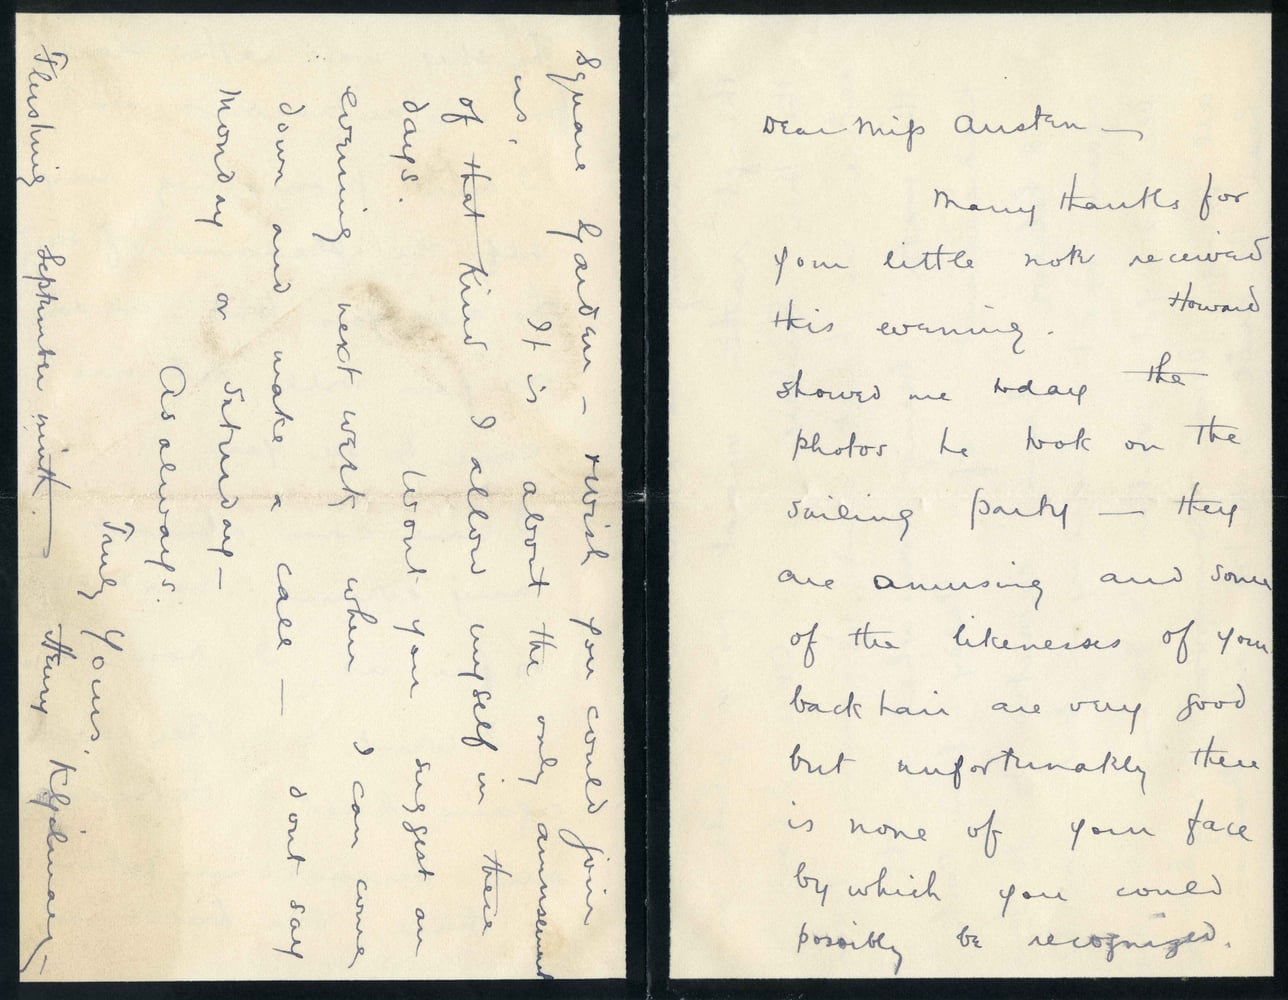 Dear Miss Austen —
Many thanks for
your little note received
this evening. Howard
showed me today the
photos he took on the
sailing party — they
are amusing and some
of the likenesses of your
back hair are very good
but unfortunately there
is none of your face
by which you could
possibly be recognized.
Square Garden — wish you could join
us. It is about the only amusement
of that kind I allow myself in these
days. Wont you suggest an
evening next week when I can come
down and make a call — dont say
Monday or Saturday —
As always.
Truly Yours,
Flushing September ninth. — Henry